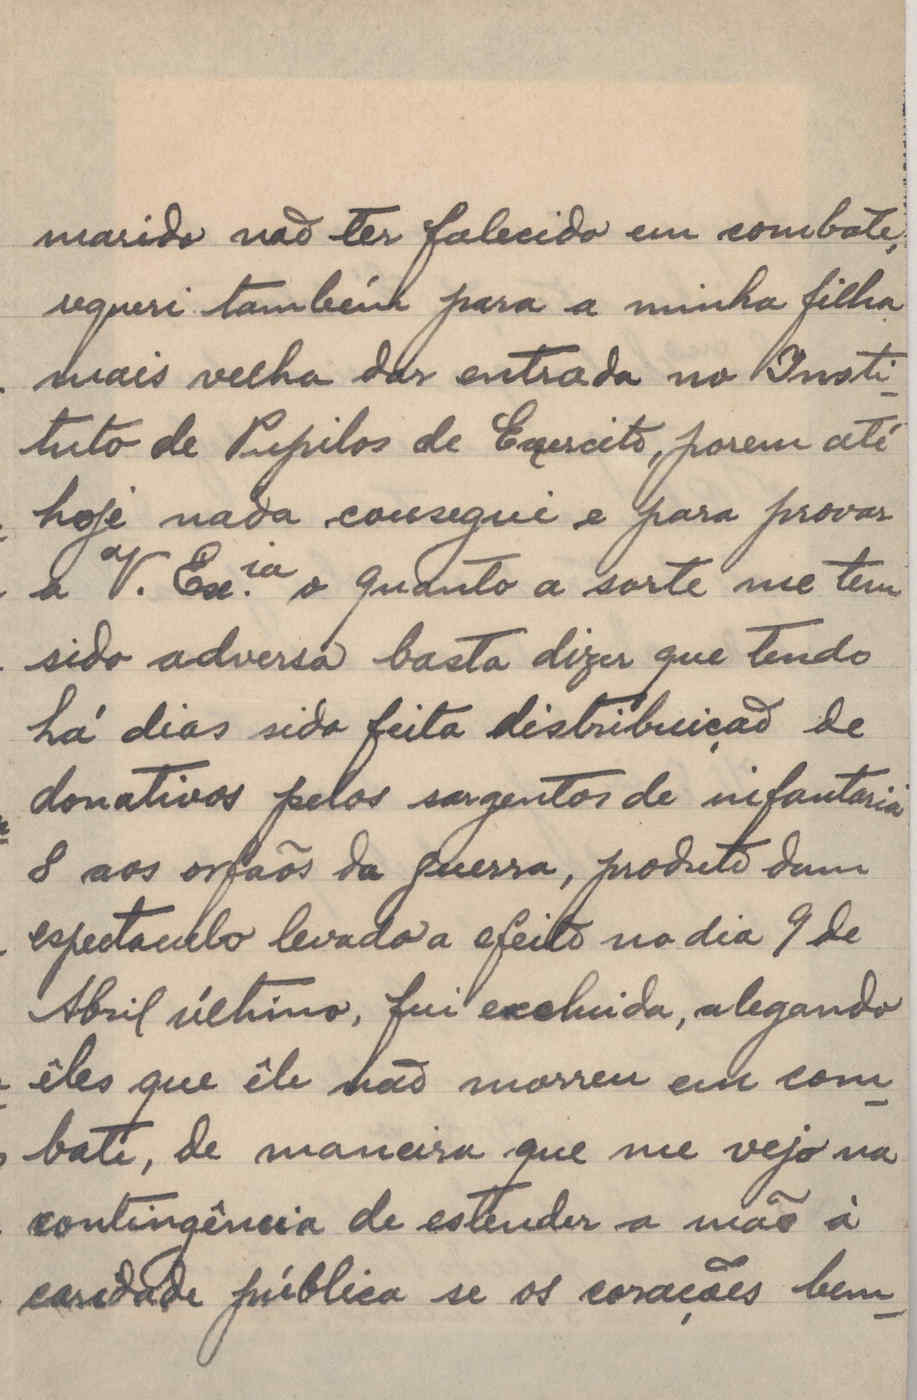 marido não ter falecido em combate,
requeri também para a minha filha
mais velha dar entrada no Insti-
tuto de Pupilos de Exercito, porem até
hoje nada consegui e para provar
a V. Ex.ia o quanto a sorte me tem
sido adversa basta dizer que tendo
há dias sido feita distribuição de
donativos pelos sargentos de infantaria
8 aos orfãos da guerra, produto dum
espectaculo levado a efeito no dia 9 de
Abril último, fui excluida, alegando
êles que êle não morreu em com-
bate, de maneira que me vejo na
contingência de estender a mão à
caridade pública se os corações bem-